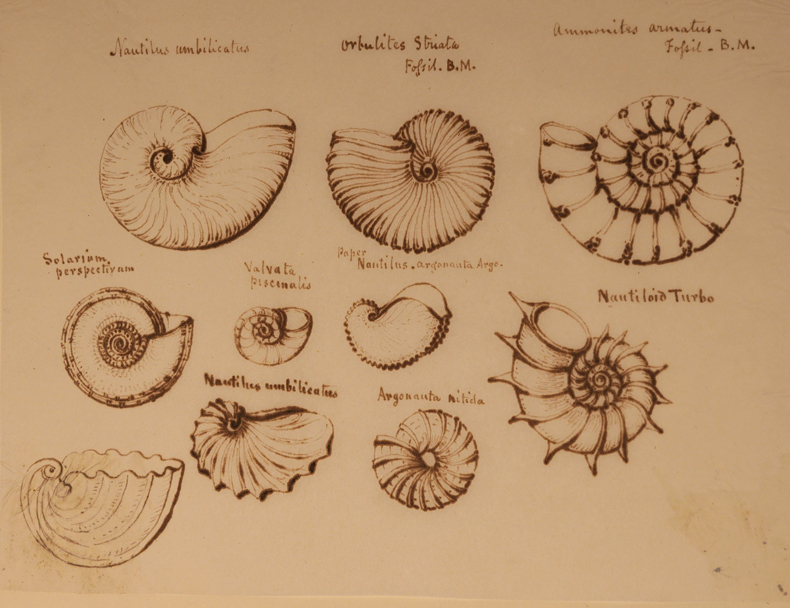 Nautilus umbilicatus
Orbulites Striata
Fossil. B.M.
Ammonites armatus.
Fossil. B.M.
Solarium
perspectivum
Valvata
piscinalis
Paper
Nautilus. argonauta Argo.
Nautiloid Turbo
Nautilus umbilicatus
Argonauta nitida